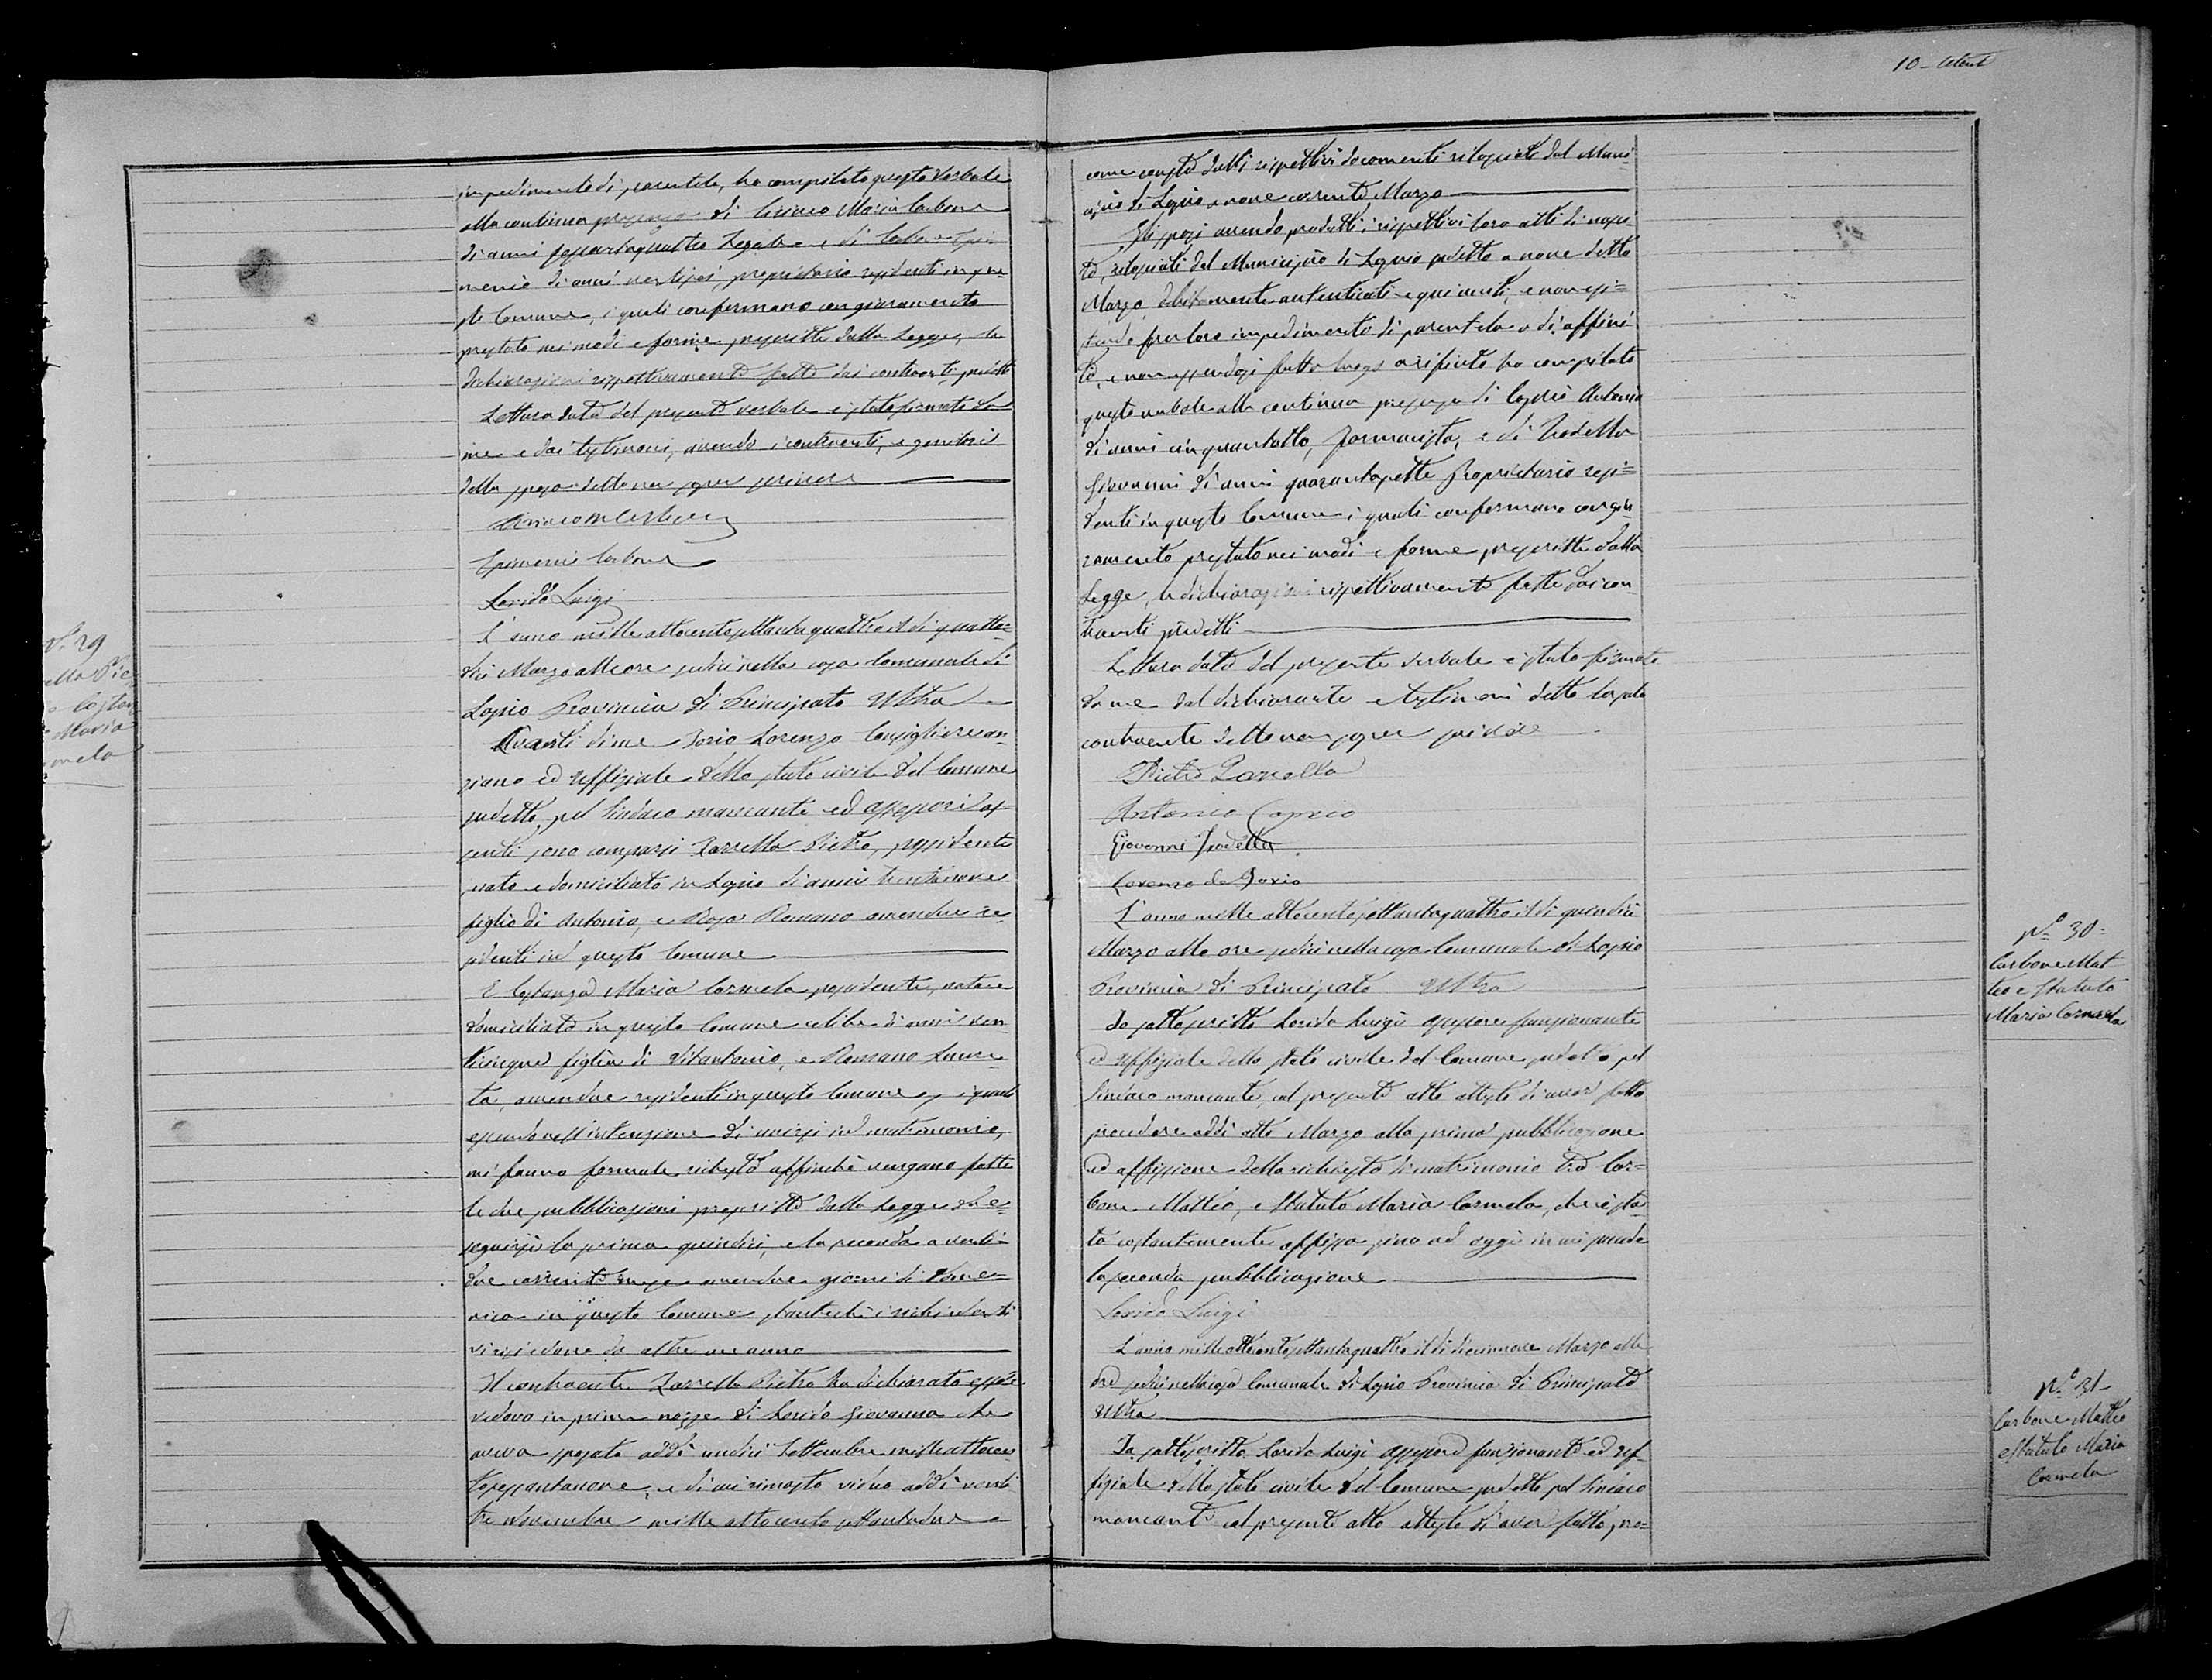 10
impedimento di parentela, ha compilato questo verbale
alla continua presenza di Ciriaco Maria Carbone
di anni sessantaquattro legale e di Carbone Epi-
menio di anni ventisei, proprietario residenti in que-
sto Comune, i quali confermano con giuramento
prestato nei modi e forme prescritte dalla Legge, le
dichiarazioni rispettivamente fatte dai contraenti predetti
Lettura data del presente verbale è stato firmato da
me e dai testimoni, avendo i contraenti, e genitori
della sposa detto non saper scrivere
Carbone
Lorido Luigi
N.º 29
L'anno mille ottocentosettantaquattro il dì quattor-
dici Marzo alle ore sedici nella casa Comunale di
Lapio Provincia di Principato Ultra
Avanti di me Iorio Lorenzo Consigliere an-
ziano ed uffiziale dello stato civile del Comune
sudetto, pel Sindaco mancante ed assessori as-
senti sono comparsi Zarrella Pietro, possidente
nato e domiciliato in Lapio di anni trentanove
figlio di Antonio, e Rosa Romano amendue re-
sidenti in questo Comune
E Costanza Maria Carmela possidente, nata e
domiciliata in questo Comune celibe di anni ven-
ticinque figlia di Vitantonio, e Romano Laure-
ta, amendue residenti in questo Comune, i quali
essendo nell'intenzione di unirsi in matrimonio,
mi fanno formale richiesta affinchè vengano fatte
le due pubblicazioni prescritte dalla Legge da e-
seguirsi la prima quindici, e la seconda a venti-
due corrente mese amendue giorni di Dome-
nica in questo Comune stantechè i richiedenti
vi risiedono da oltre un anno
Il contraente Zarrella Pietro ha dichiarato essere
vedovo in prime nozze di Lorido Giovanna che
aveva sposato addì undici Settembre milleottocen-
tosessantanove, e di cui rimasto vedovo addì venti
tre Novembre mille ottocento settantadue
come consta dalli rispettivi documenti rilasciati dal Muni-
cipio di Lapio a nove corrente Marzo
Gli sposi avendo prodotti i rispettivi loro atti di nasci-
ta, rilasciati dal Municipio di Lapio sudetto a nove detto
Marzo, debitamente autenticati e qui inserti, e non esi-
stendo fra loro impedimento di parentela o di affini-
tà, e non essendosi fatto luogo a rifiuto ha compilato
questo verbale alla continua presenza di Caprio Antonio
di anni cinquantotto, farmacista, e di Trodella
Giovanni di anni quarantasette Proprietario resi-
denti in questo Comune i quali confermano con giu-
ramento prestato nei modi e forme prescritte dalla
Legge, le dichiarazioni rispettivamente fatte dai con-
traenti predetti
Lettura data del presente verbale è stato firmato
da me dal dichiarante e testimoni detto la sola
contraente detto non saper scrivere
Pietro Zarrella
Antonio Caprio
Giovanni Trodella
Lorenzo de Iorio
N.º 30
Carbone Mat-
teo e Statuto
Maria Carmela
L'anno mille ottocentosettantaquattro il dì quindici
Marzo alle ore sedici nella casa Comunale di Lapio
Provincia di Principato Ultra
Io sottoscritto Lorido Luigi assessore funzionante
ed uffiziale dello stato civile del Comune sudetto pel
Sindaco mancante, col presente atto attesto di aver fatto
procedere addì otto Marzo alla prima pubblicazione
ed affissione della richiesta di matrimonio tra Car-
bone Matteo, e Statuto Maria Carmela, che è sta-
ta costantemente affissa sino ad oggi in cui procede
la seconda pubblicazione
Lorido Luigi
N.º 31
Carbone Matteo
e Statuto Maria
Carmela
L'anno milleottocentosettantaquattro il dì diciannove Marzo alle
ore sedici nella casa Comunale di Lapio Provincia di Principato
Ultra
Io sottoscritto Lorido Luigi assessore funzionante ed uf-
fiziale dello stato civile del Comune sudetto pel Sindaco
mancante col presente atto attesto di aver fatto pro-